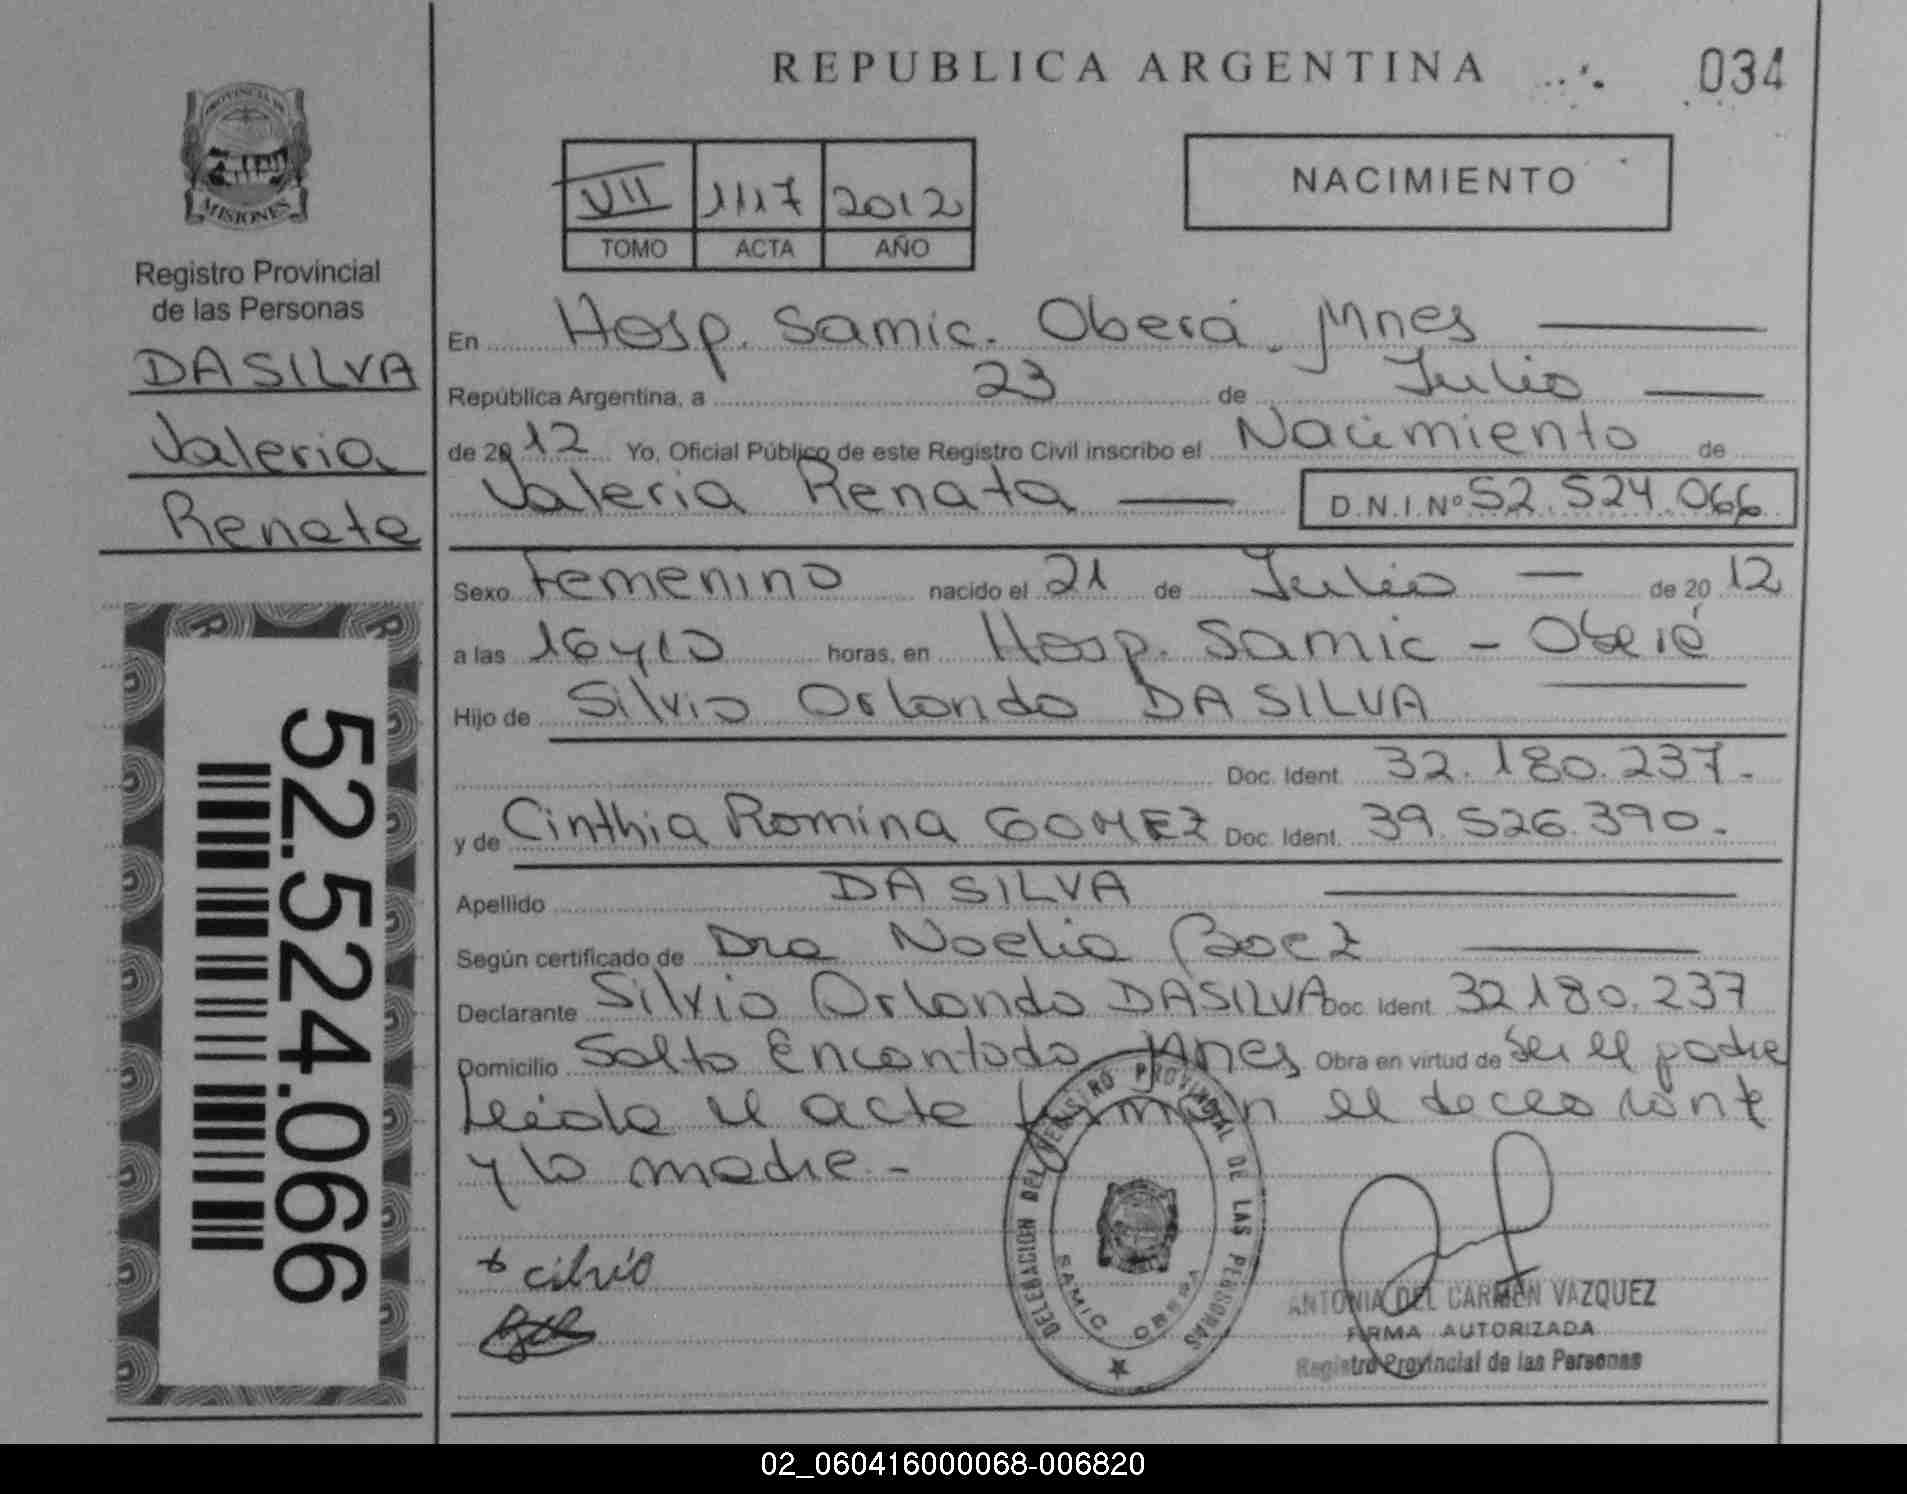 REPUBLICA ARGENTINA
034
PROVINCIA DE
MISIONES
Registro Provincial
de las Personas
DASILVA
Valeria
Renata
52.524.066
VII 1117 2012
TOMO ACTA AÑO
NACIMIENTO
En Hosp. Samic. Oberá. Mnes
República Argentina, a 23 de Julio
de 2012 Yo, Oficial Público de este Registro Civil inscribo el Nacimiento de
Valeria Renata D.N.I.Nº 52.524.066
Sexo Femenino nacido el 21 de Julio de 2012
a las 16 y 10 horas, en Hosp. Samic - Oberá
Hijo de Silvio Orlando DASILVA
Doc. Ident. 32.180.237.
y de Cinthia Romina GOMEZ Doc. Ident. 39.526.390.
Apellido DASILVA
Según certificado de Dra Noelia Baez
Declarante Silvio Orlando DASILVA Doc. Ident. 32180.237
Domicilio Salto Encantado Mnes Obra en virtud de Ser el padre
Leida el acta firman el
y la madre.-
cilvio
DELEGACION DEL REGISTRO PROVINCIAL DE LAS PERSONAS
SAMIC OBERA
ANTONIA DEL CARMEN VAZQUEZ
FIRMA AUTORIZADA
Registro Provincial de las Personas
02_060416000068-006820